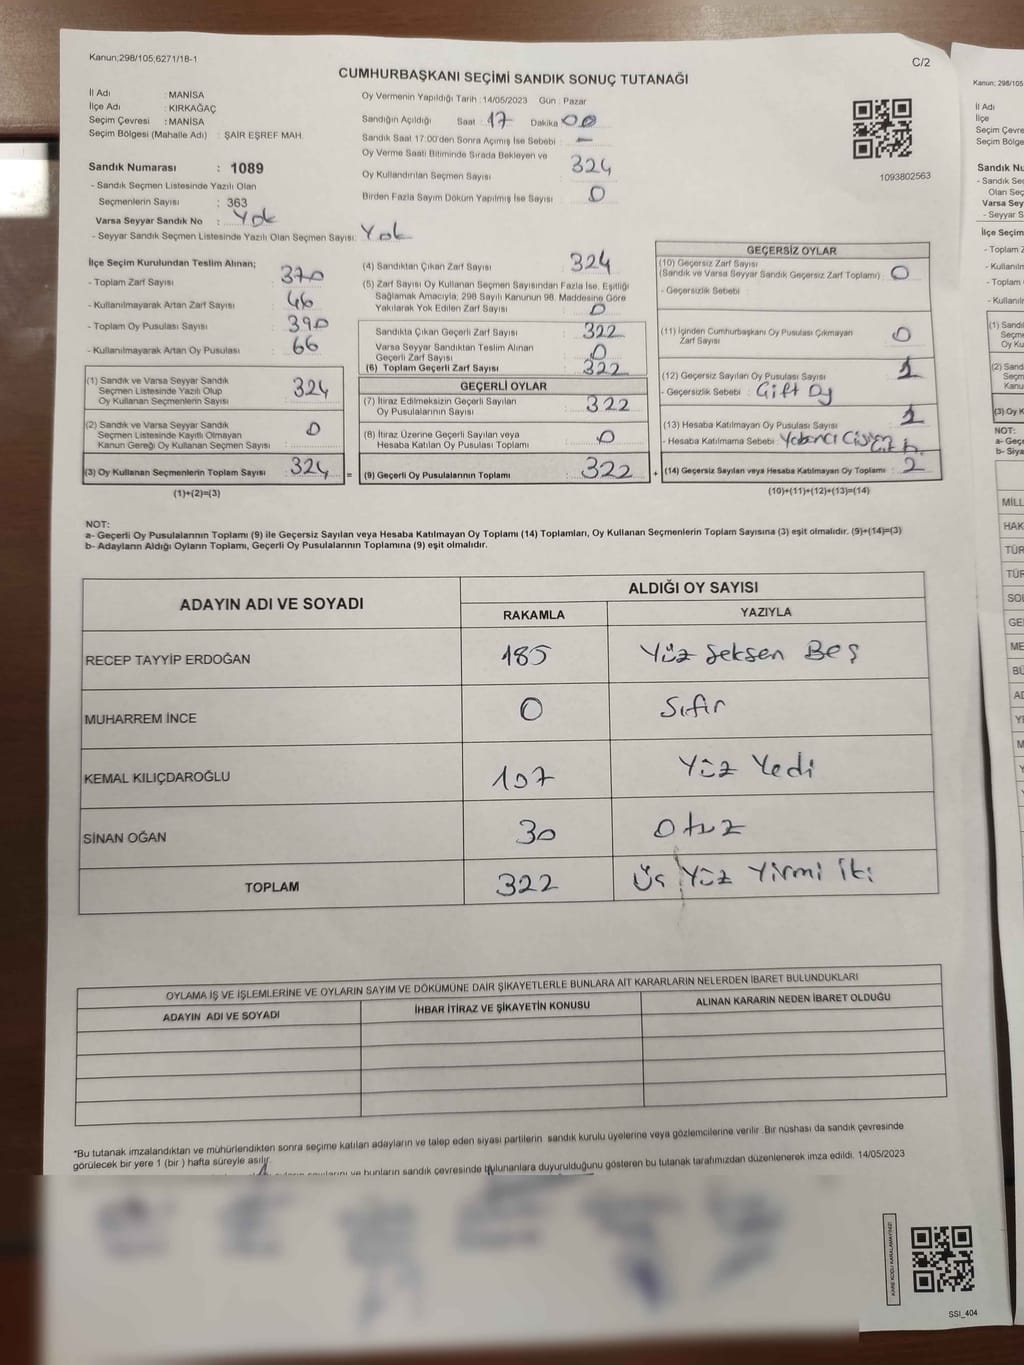 Kanun;298/105;6271/18-1
C/2
CUMHURBAŞKANI SEÇİMİ SANDIK SONUÇ TUTANAĞI
İl Adı : MANİSA
İlçe Adı : KIRKAĞAÇ
Seçim Çevresi : MANİSA
Seçim Bölgesi (Mahalle Adı) : ŞAİR EŞREF MAH.
Sandık Numarası : 1089
- Sandık Seçmen Listesinde Yazılı Olan
Seçmenlerin Sayısı : 363
Varsa Seyyar Sandık No : Yok
- Seyyar Sandık Seçmen Listesinde Yazılı Olan Seçmen Sayısı: Yok
Oy Vermenin Yapıldığı Tarih :14/05/2023 Gün : Pazar
Sandığın Açıldığı Saat : 17 Dakika : 00
Sandık Saat 17:00'den Sonra Açımış İse Sebebi : -
Oy Verme Saati Bitiminde Sırada Bekleyen ve
Oy Kullandırılan Seçmen Sayısı : 324
Birden Fazla Sayım Döküm Yapılmış İse Sayısı : 0
1093802563
İlçe Seçim Kurulundan Teslim Alınan;
- Toplam Zarf Sayısı : 370
- Kullanılmayarak Artan Zarf Sayısı : 46
- Toplam Oy Pusulası Sayısı : 390
- Kullanılmayarak Artan Oy Pusulası : 66
(1) Sandık ve Varsa Seyyar Sandık
Seçmen Listesinde Yazılı Olup
Oy Kullanan Seçmenlerin Sayısı : 324
(2) Sandık ve Varsa Seyyar Sandık
Seçmen Listesinde Kayıtlı Olmayan
Kanun Gereği Oy Kullanan Seçmen Sayısı : 0
(3) Oy Kullanan Seçmenlerin Toplam Sayısı : 324 =
(1)+(2)=(3)
(4) Sandıktan Çıkan Zarf Sayısı : 324
(5) Zarf Sayısı Oy Kullanan Seçmen Sayısından Fazla İse, Eşitliği
Sağlamak Amacıyla; 298 Sayılı Kanunun 98. Maddesine Göre
Yakılarak Yok Edilen Zarf Sayısı : 0
Sandıkta Çıkan Geçerli Zarf Sayısı : 322
Varsa Seyyar Sandıktan Teslim Alınan
Geçerli Zarf Sayısı : 0
(6) Toplam Geçerli Zarf Sayısı : 322
GEÇERLİ OYLAR
(7) İtiraz Edilmeksizin Geçerli Sayılan
Oy Pusulalarının Sayısı : 322
(8) İtiraz Üzerine Geçerli Sayılan veya
Hesaba Katılan Oy Pusulası Toplamı : 0
(9) Geçerli Oy Pusulalarının Toplamı : 322 +
GEÇERSİZ OYLAR
(10) Geçersiz Zarf Sayısı
(Sandık ve Varsa Seyyar Sandık Geçersiz Zarf Toplamı) : 0
- Geçersizlik Sebebi :
(11) İçinden Cumhurbaşkanı Oy Pusulası Çıkmayan
Zarf Sayısı : 0
(12) Geçersiz Sayılan Oy Pusulası Sayısı : 1
- Geçersizlik Sebebi : Çift Oy
(13) Hesaba Katılmayan Oy Pusulası Sayısı : 1
- Hesaba Katılmama Sebebi : Yabancı
(14) Geçersiz Sayılan veya Hesaba Katılmayan Oy Toplamı : 2
(10)+(11)+(12)+(13)=(14)
NOT:
a- Geçerli Oy Pusulalarının Toplamı (9) ile Geçersiz Sayılan veya Hesaba Katılmayan Oy Toplamı (14) Toplamları, Oy Kullanan Seçmenlerin Toplam Sayısına (3) eşit olmalıdır. (9)+(14)=(3)
b- Adayların Aldığı Oyların Toplamı, Geçerli Oy Pusulalarının Toplamına (9) eşit olmalıdır.
ADAYIN ADI VE SOYADI
ALDIĞI OY SAYISI
RAKAMLA YAZIYLA
RECEP TAYYİP ERDOĞAN 185 Yüz Seksen Beş
MUHARREM İNCE 0 Sıfır
KEMAL KILIÇDAROĞLU 107 Yüz Yedi
SİNAN OĞAN 30 Otuz
TOPLAM 322 Üç Yüz Yirmi İki
OYLAMA İŞ VE İŞLEMLERİNE VE OYLARIN SAYIM VE DÖKÜMÜNE DAİR ŞİKAYETLERLE BUNLARA AİT KARARLARIN NELERDEN İBARET BULUNDUKLARI
ADAYIN ADI VE SOYADI İHBAR İTİRAZ VE ŞİKAYETİN KONUSU ALINAN KARARIN NEDEN İBARET OLDUĞU
*Bu tutanak imzalandıktan ve mühürlendikten sonra seçime katılan adayların ve talep eden siyasi partilerin sandık kurulu üyelerine veya gözlemcilerine verilir .Bir nüshası da sandık çevresinde
görülecek bir yere 1 (bir ) hafta süreyle asılır.
bunların sandık çevresinde bulunanlara duyurulduğunu gösteren bu tutanak tarafımızdan düzenlenerek imza edildi. 14/05/2023
SSİ_404
Kanun; 298/105
İl Adı
İlçe
Seçim Çevre
Seçim Bölge
Sandık Nu
- Sandık Seç
Olan Seç
Varsa Sey
- Seyyar S
İlçe Seçim
- Toplam Z
- Kullanılm
- Toplam
- Kullanılı
(1) Sandı
NOT:
a- Geçe
b- Siya
MİLL
HAK
TÜR
TÜR